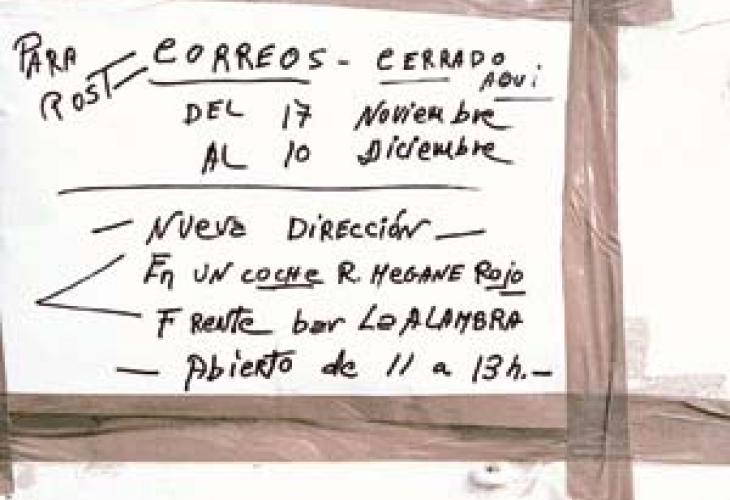 PARA
POST
CORREOS - CERRADO
AQUi
DEL 17 Noviembre
AL 10 Diciembre
— NUeva DiRECCióN —
En UN cocHe R. MeGANE Rojo
FReNte bar La ALAMBRA
— AbieRTO de 11 a 13h. -